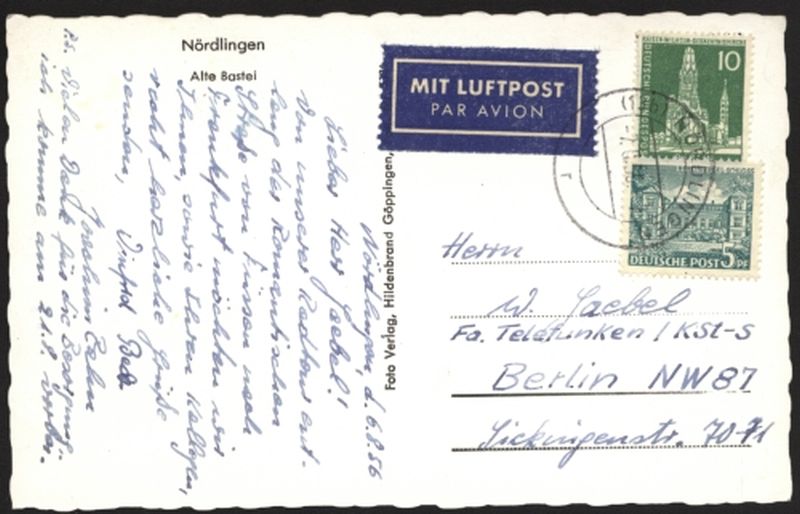 Nördlingen
Alte Bastei
Nördlingen, d. 6.8.56
Lieber Herr Gaebel!
Von unserer Radtour ent-
lang der Romantischen
Straße von Füssen nach
Frankfurt möchten wir
Ihnen, sowie Ihren Kollegen,
recht herzliche Grüße
senden,
Winfried
Joachim
P.S. Vielen Dank für die Besorgung.
ich komme am 21.8. vorbei.
Foto Verlag, Hildenbrand Göppingen,
MIT LUFTPOST
PAR AVION
10
NÖRDLINGEN
DEUTSCHE POST 5 PF
Herrn
W. Gaebel
Fa. Telefunken / KSt-S
Berlin NW87
Sickingenstr. 70-71